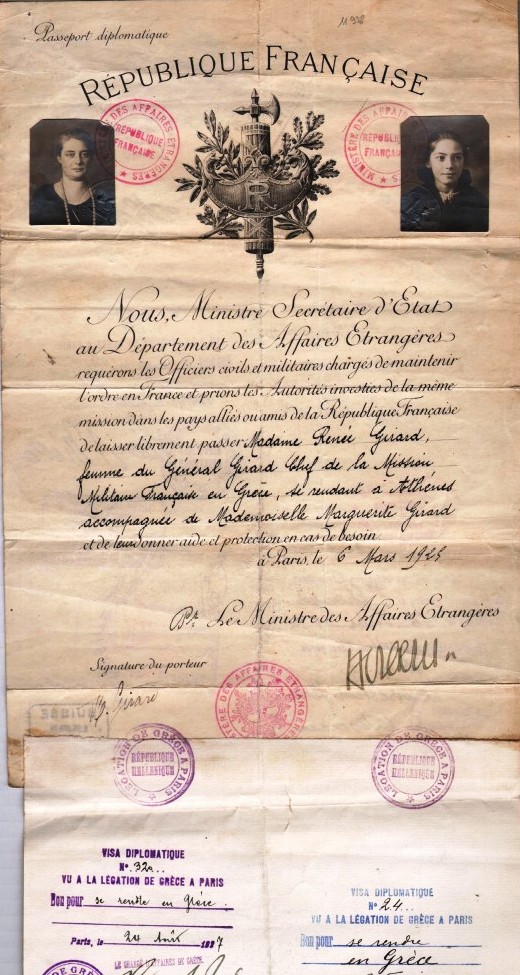 Passeport diplomatique
RÉPUBLIQUE FRANÇAISE
MINISTÈRE DES AFFAIRES ETRANGÈRES
RÉPUBLIQUE
FRANÇAISE
MINISTÈRE DES AFFAIRES
RÉPUBLIQUE
FRANÇAISE
R F
Nous, Ministre Secrétaire d'Etat
au Département des Affaires Etrangères
requérons les Officiers civils et militaires chargés de maintenir
l'ordre en France et prions les Autorités investies de la même
mission dans les pays alliés ou amis de la République Française
de laisser librement passer Madame Renée Girard,
femme du Général Girard Chef de la Mission
Militaire Française en Grèce, se rendant à Athènes
accompagnée de Mademoiselle Marguerite Girard
et de leur donner aide et protection en cas de besoin.
à Paris, le 6 Mars 192
Pr. Le Ministre des Affaires Etrangères
Signature du porteur
Girard
MINISTÈRE DES AFFAIRES ETRANGÈRES
LÉGATION DE GRÈCE A PARIS
RÉPUBLIQUE
HELLÉNIQUE
LÉGATION DE GRÈCE A PARIS
RÉPUBLIQUE
HELLÉNIQUE
VISA DIPLOMATIQUE
No.
VU A LA LÉGATION DE GRÈCE A PARIS
Bon pour se rendre en Grèce.
Paris, le 24 Août 1927
LE CHARGÉ D'AFFAIRES DE GRÈCE
VISA DIPLOMATIQUE
No 24..
VU A LA LÉGATION DE GRÈCE A PARIS
Bon pour se rendre
en Grèce